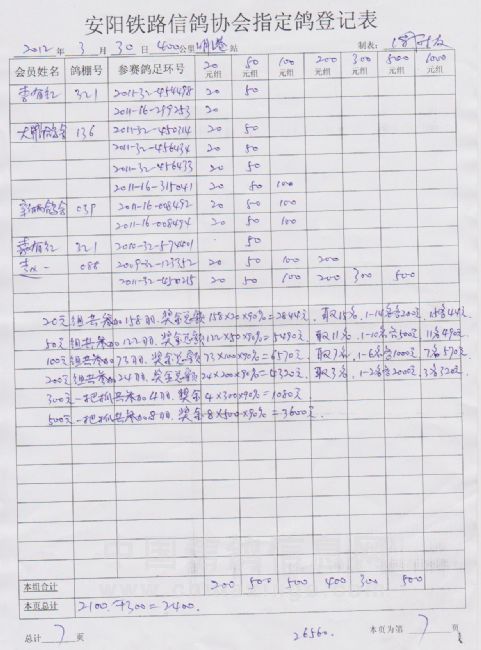 安阳铁路信鸽协会指定鸽登记表
2012 年 3 月 30 日 400公里 站 制表:
会员姓名 鸽棚号 参赛鸽足环号 20元组 50元组 100元组 200元组 300元组 500元组 1000元组
321 2011-32-454498 20 50
2011-16-299253 20
136 2011-32-450314 20 50
2011-32-456434 20 50
2011-32-456433 20 50
2011-16-315041 20 50 100
039 2011-16-008492 20 50 100
2011-16-008494 20 50 100
321 2010-32-574401 50
088 2009-32-123352 20 50 100 200
2011-32-450215 20 50 100 200 300 500
20元组共参加158羽,奖金总额158×20×90%=2844元,取15名,1-14名200元,15名44元
50元组共参加122羽,奖金总额122×50×90%=5490元,取11名,1-10名500元,11名490元
100元组共参加73羽,奖金总额73×100×90%=6570元,取7名,1-6名1000元,7名570元
200元组共参加24羽,奖金总额24×200×90%=4320元,取3名,1-2名2000元,3名320元
300元一把抓共参加4羽,奖金4×300×90%=1080元
500元一把抓共参加8羽,奖金8×500×90%=3600元
本组合计 200 500 500 400 300 500
本页总计 2100.+300=2400.
总计 7 页 26560. 本页为第 7 页